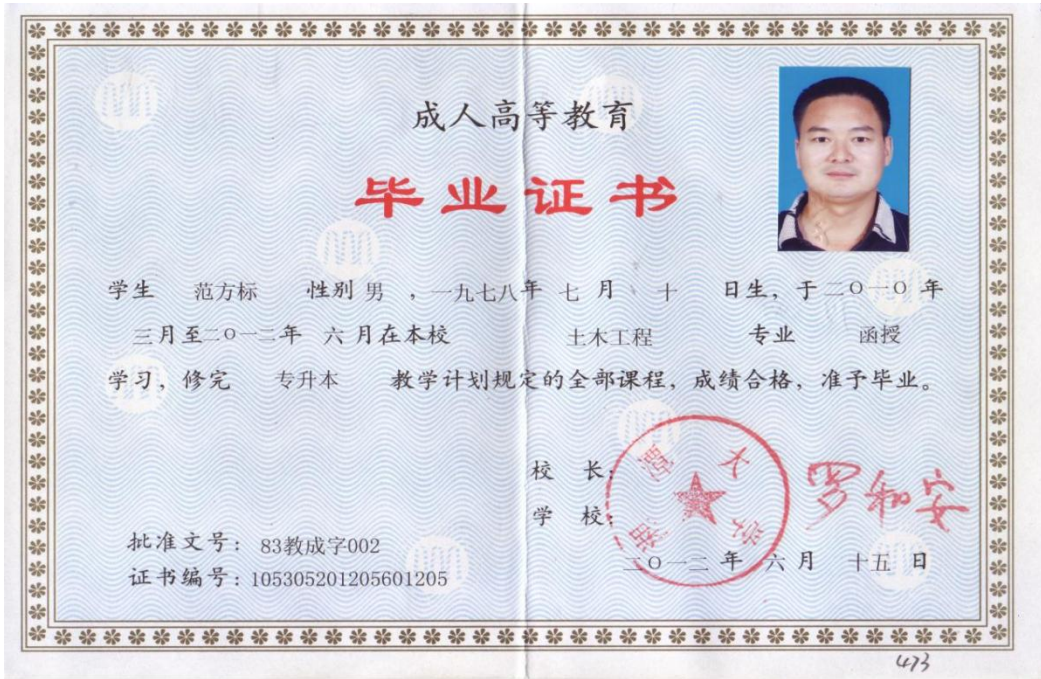 成人高等教育
毕业证书
学生 范方标 性别 男 ，一九七八年 七 月 十 日生，于二〇一〇年
三月至二〇一二年 六 月在本校 土木工程 专业 函授
学习，修完 专升本 教学计划规定的全部课程，成绩合格，准予毕业。
校 长：
罗和安
学 校：
湘潭大学
批准文号：83教成字002
二〇一二年 六 月 十五 日
证书编号：105305201205601205
473